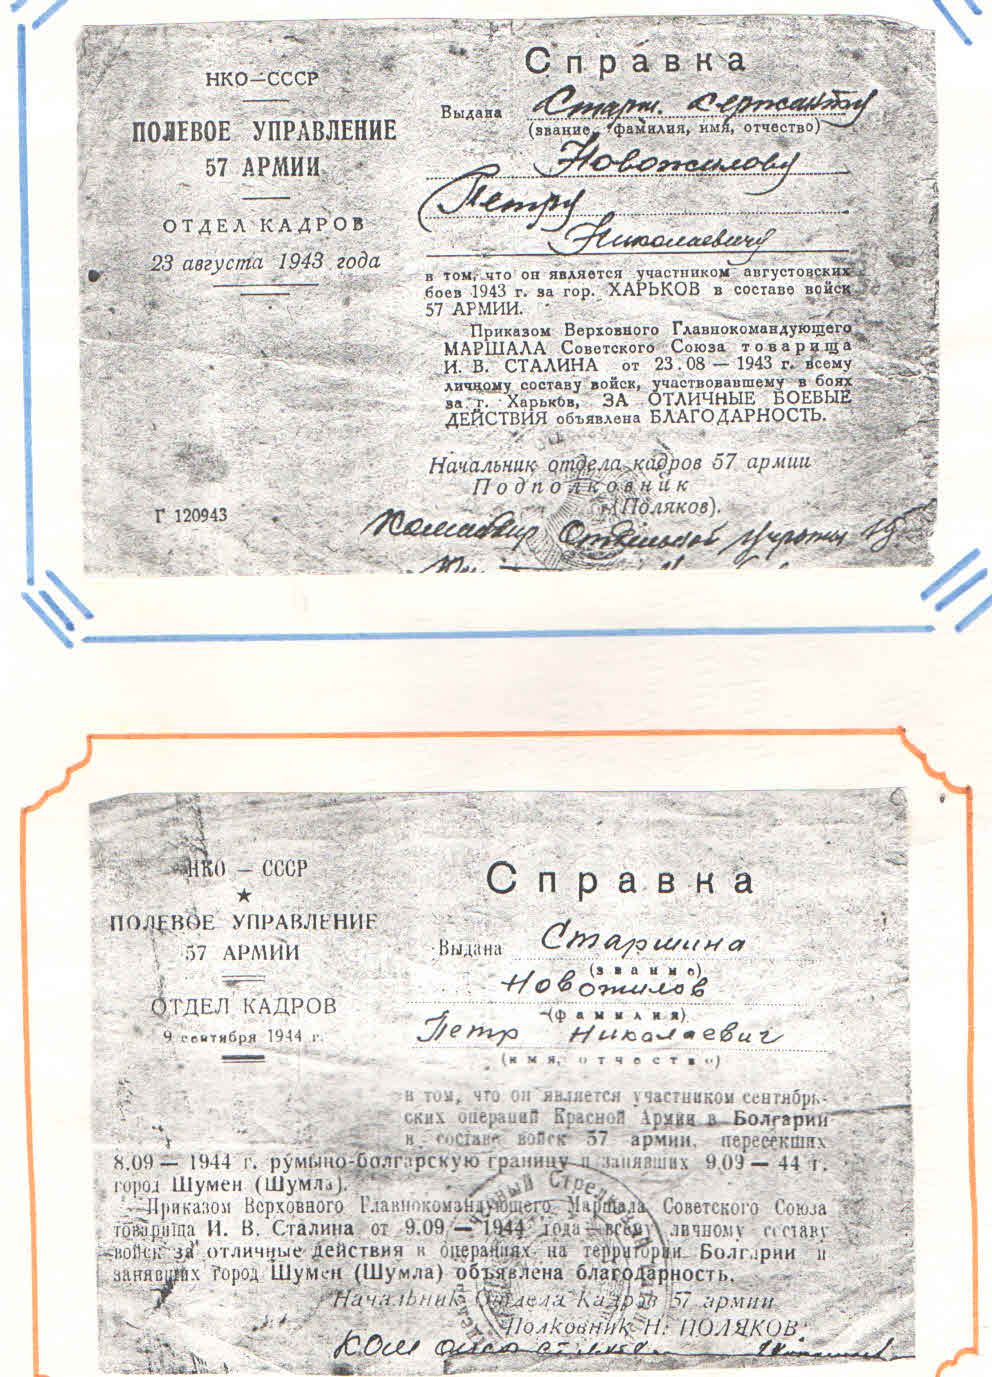 НКО—СССР
ПОЛЕВОЕ УПРАВЛЕНИЕ
57 АРМИИ
ОТДЕЛ КАДРОВ
23 августа 1943 года
Г 120943
Справка
Выдана Старш. сержанту
(звание, фамилия, имя, отчество)
Новожилову
Петру
Николаевичу
в том, что он является участником августовских
боев 1943 г. за гор. ХАРЬКОВ в составе войск
57 АРМИИ.
Приказом Верховного Главнокомандующего
МАРШАЛА Советского Союза товарища
И. В. СТАЛИНА от 23.08 — 1943 г. всему
личному составу войск, участвовавшему в боях
за г. Харьков, ЗА ОТЛИЧНЫЕ БОЕВЫЕ
ДЕЙСТВИЯ объявлена БЛАГОДАРНОСТЬ.
Начальник отдела кадров 57 армии
Подполковник
(Поляков).
Отдельной
НКО — СССР
ПОЛЕВОЕ УПРАВЛЕНИЕ
57 АРМИИ
ОТДЕЛ КАДРОВ
9 сентября 1944 г.
Справка
Выдана Старшина
(звание)
Новожилов
(фамилия)
Петр Николаевич
(имя, отчество)
в том, что он является участником сентябрь-
ских операций Красной Армии в Болгарии
в составе войск 57 армии, пересекших
8.09 — 1944 г. румыно-болгарскую границу и занявших 9.09 — 44 г.
город Шумен (Шумла).
Приказом Верховного Главнокомандующего Маршала Советского Союза
товарища И. В. Сталина от 9.09 — 1944 года всему личному составу
войск за отличные действия в операциях на территории Болгарии и
занявших город Шумен (Шумла) объявлена благодарность.
Начальник Отдела Кадров 57 армии
Полковник Н. ПОЛЯКОВ.